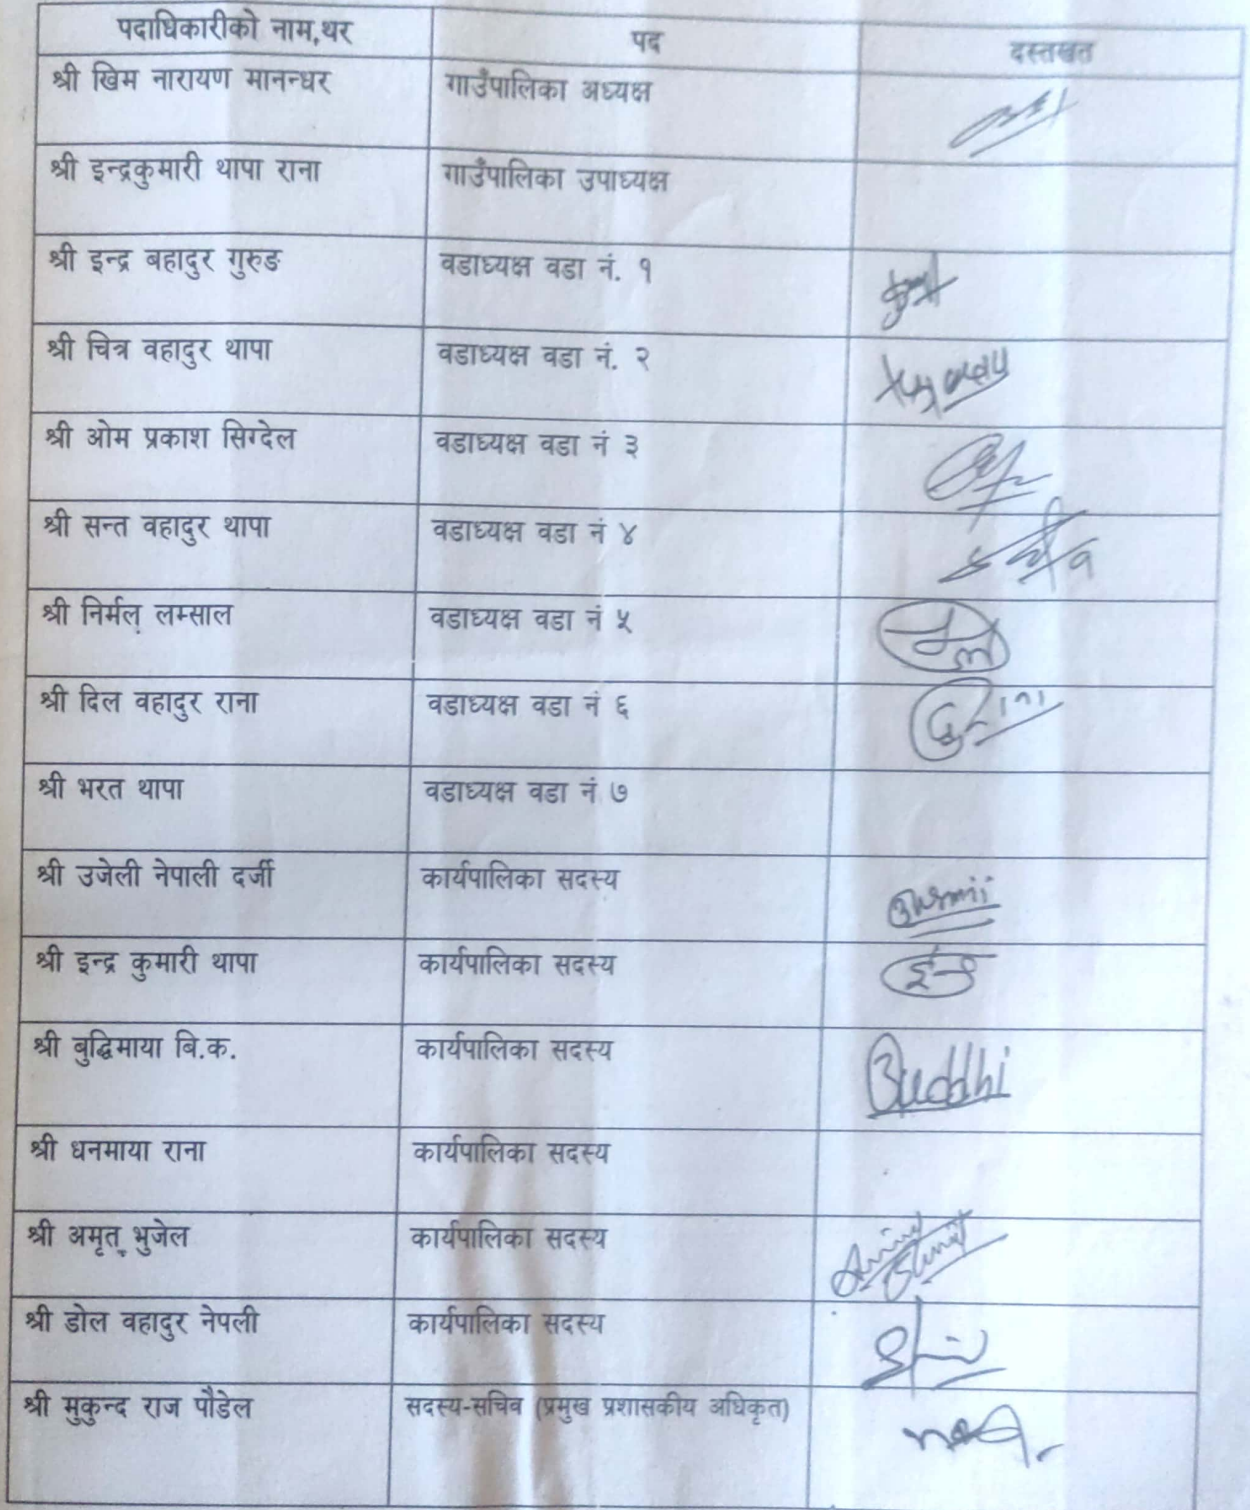 पदाधिकारीको नाम,थर पद दस्तखत
श्री खिम नारायण मानन्धर गाउँपालिका अध्यक्ष
श्री इन्द्रकुमारी थापा राना गाउँपालिका उपाध्यक्ष
श्री इन्द्र बहादुर गुरुङ वडाध्यक्ष वडा नं. १
श्री चित्र वहादुर थापा वडाध्यक्ष वडा नं. २
श्री ओम प्रकाश सिग्देल वडाध्यक्ष वडा नं ३
श्री सन्त वहादुर थापा वडाध्यक्ष वडा नं ४
श्री निर्मल लम्साल वडाध्यक्ष वडा नं ५
श्री दिल वहादुर राना वडाध्यक्ष वडा नं ६
श्री भरत थापा वडाध्यक्ष वडा नं ७
श्री उजेली नेपाली दर्जी कार्यपालिका सदस्य
श्री इन्द्र कुमारी थापा कार्यपालिका सदस्य
श्री बुद्धिमाया बि.क. कार्यपालिका सदस्य Buddhi
श्री धनमाया राना कार्यपालिका सदस्य
श्री अमृत भुजेल कार्यपालिका सदस्य
श्री डोल वहादुर नेपली कार्यपालिका सदस्य
श्री मुकुन्द राज पौडेल सदस्य-सचिव (प्रमुख प्रशासकीय अधिकृत)